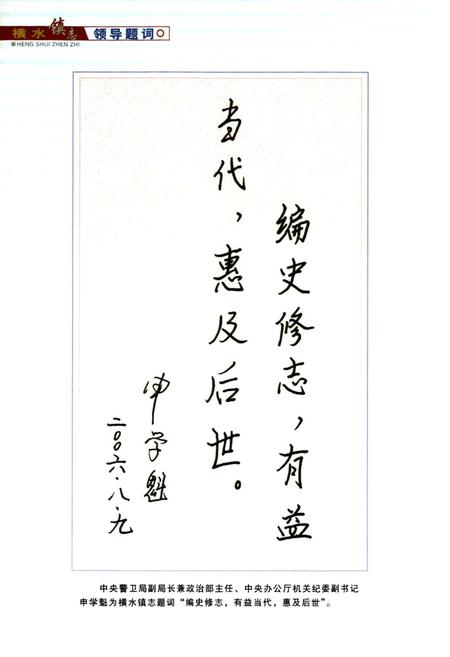 横水镇志 领导题词
HENG SHUI ZHEN ZHI
编史修志，有益
当代，惠及后世。
申学魁
二〇〇六·八·九
中央警卫局副局长兼政治部主任、中央办公厅机关纪委副书记
申学魁为横水镇志题词“编史修志，有益当代，惠及后世”。